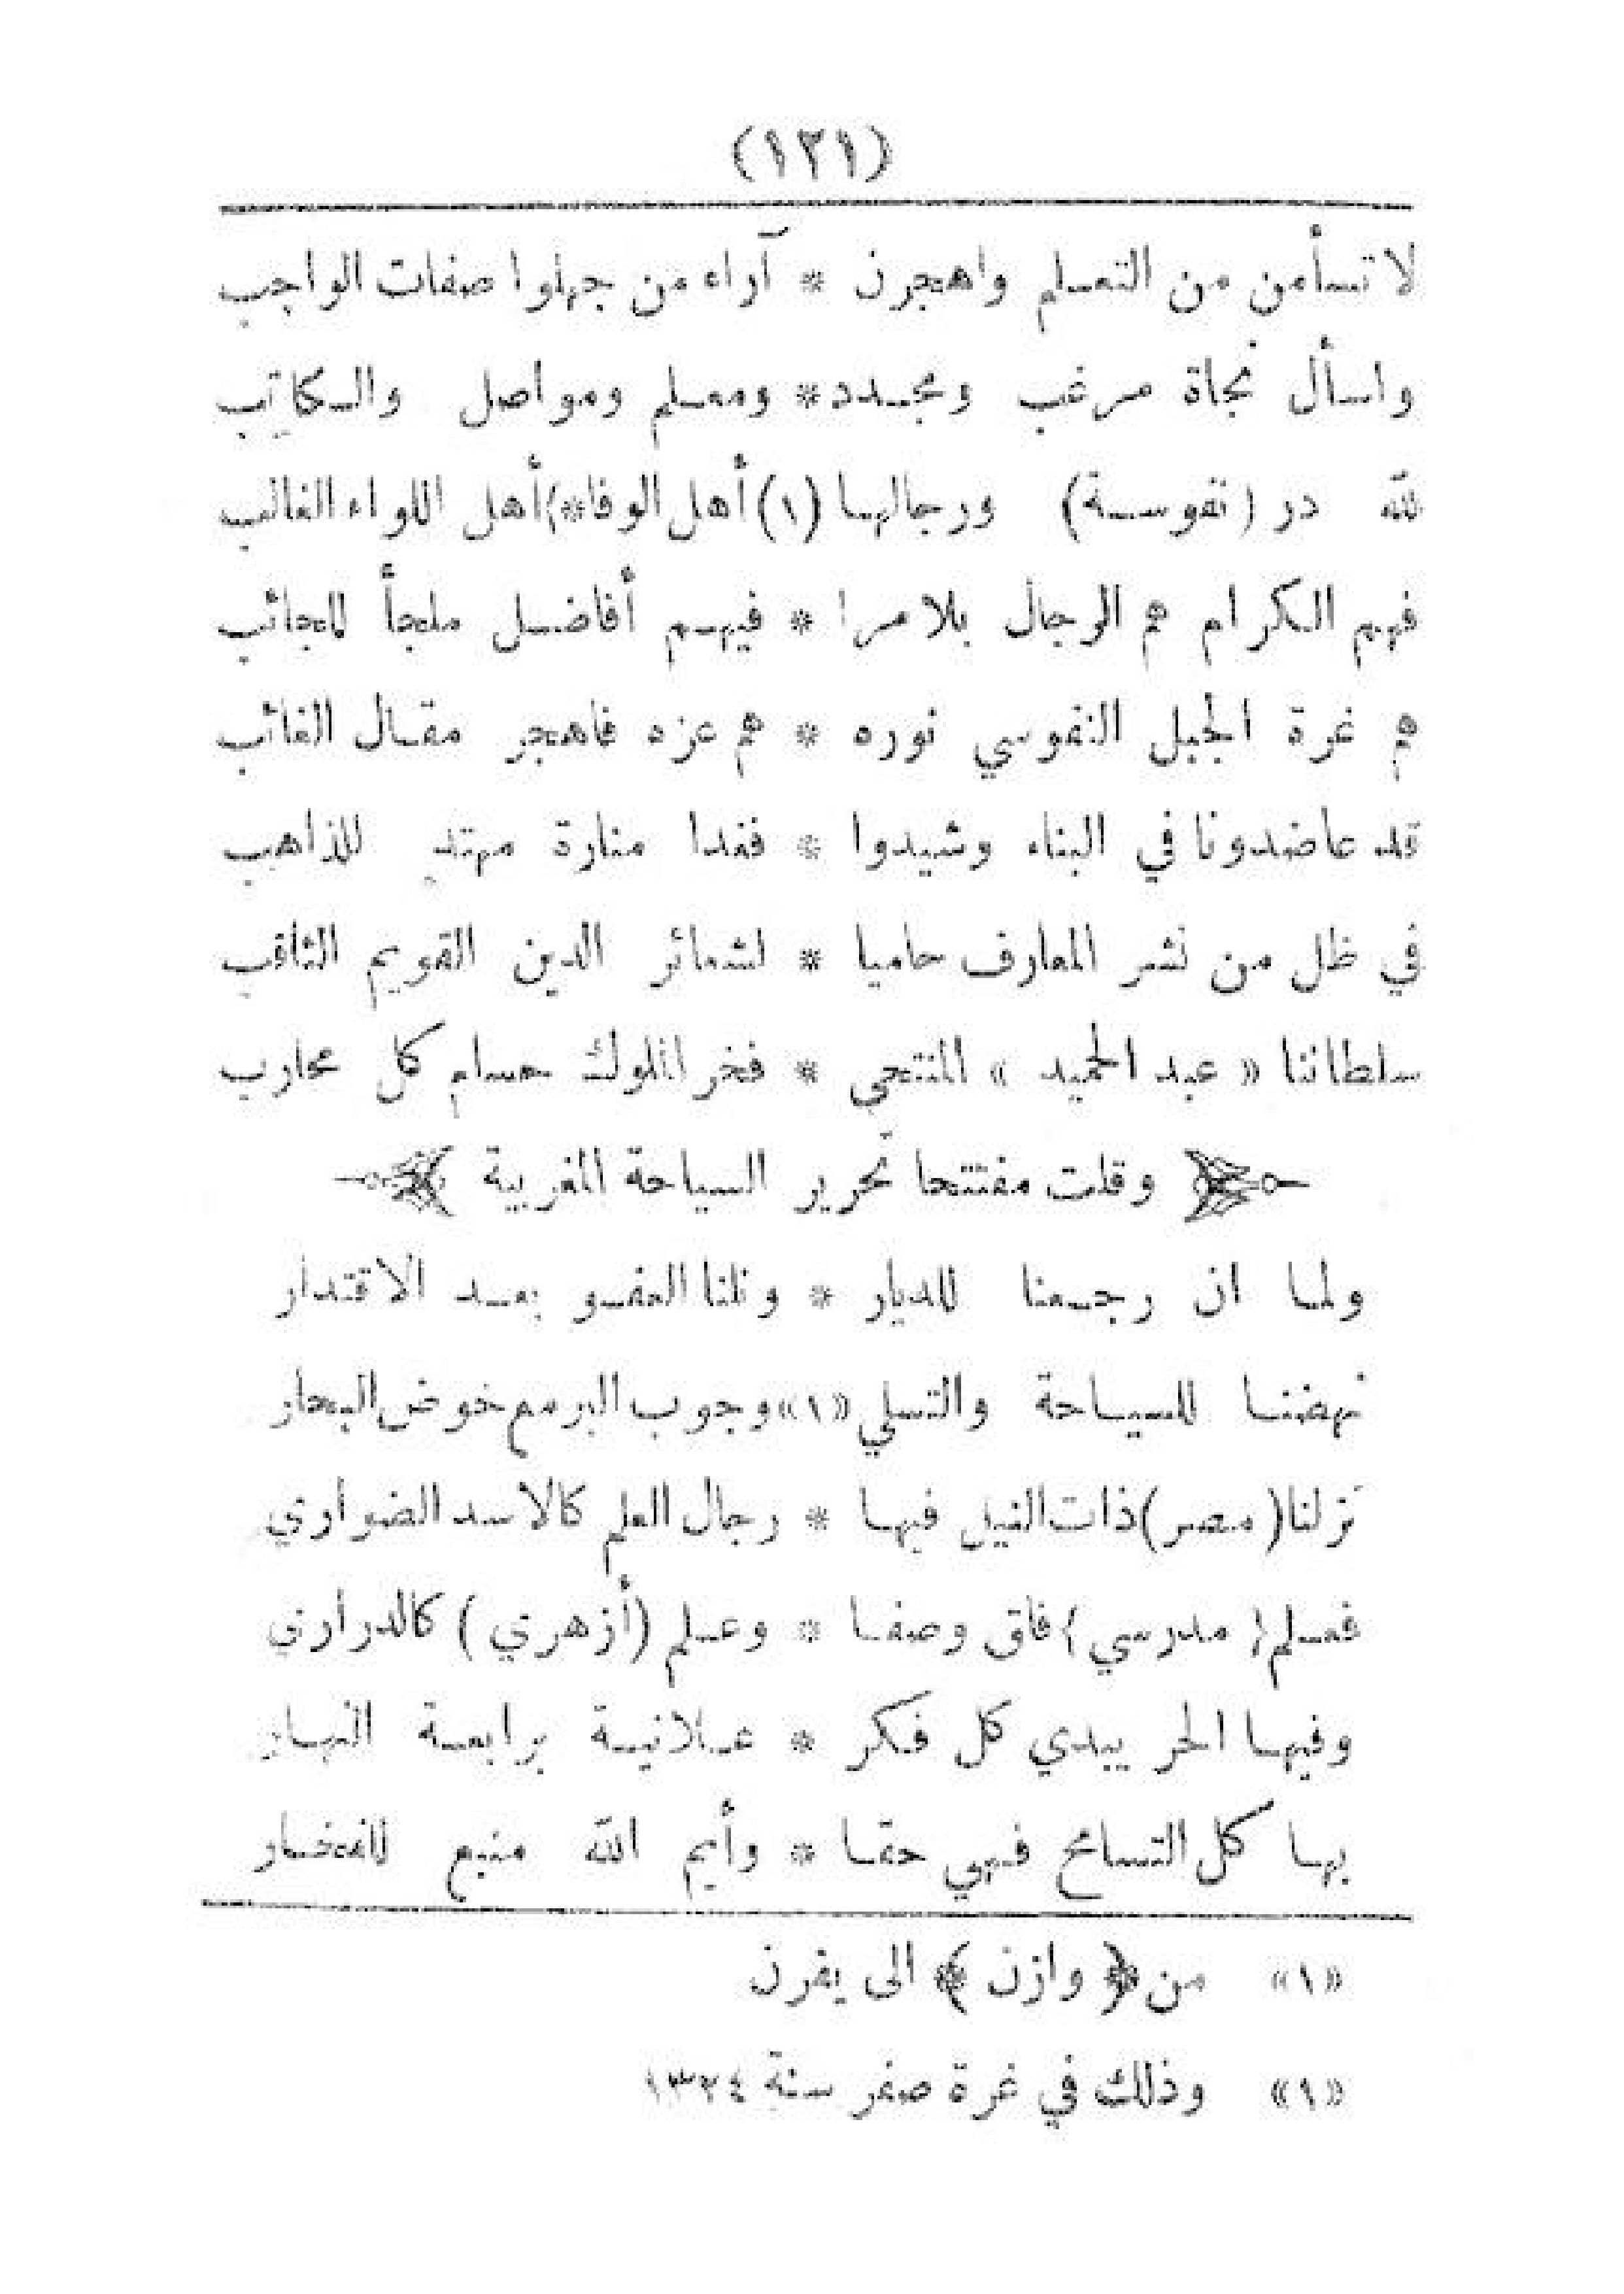 (١٢١)
لا تسأمن من التعلم واهجرن * آراء من جهلوا صفات الواجب
واسأل نجاة مرغب ومجدد * ومعلم ومواصل والكاتب
لله در (نفوسة) ورجالها (١) أهل الوفا * أهل اللواء الغالب
فهم الكرام هم الرجال بلا مرا * فيهم أفاضل ملجأ للجائب
هم غرة الجبل النفوسي نوره * هم عزه فاهجر مقال الغائب
قد عاضدونا في البناء وشيدوا * فغدا منارة مهتد للذاهب
في ظل من نشر المعارف حاميا * لشعائر الدين القويم الثاقب
سلطاننا « عبد الحميد » المنتحى * فخر الملوك حسام كل محارب
وقلت مفتتحا تحرير السياحة المغربية
ولما ان رجعنا للديار * ونلنا العفو بعد الاقتدار
نهضنا للسياحة والتسلي «١» وجوب البر مع خوض البحار
نزلنا (مصر) ذات النيل فيها * رجال العلم كالاسد الضواري
فعلم (مدرسي) فاق وصفا * وعلم (أزهري) كالدراري
وفيها الحر يبدي كل فكر * علانية برابعة النهار
بها كل التسامح فهي حقا * وأيم الله منبع للفخار
«١» من ﴿ وازن ﴾ الى يفرن
«١» وذلك في غرة صفر سنة ١٣٢٤